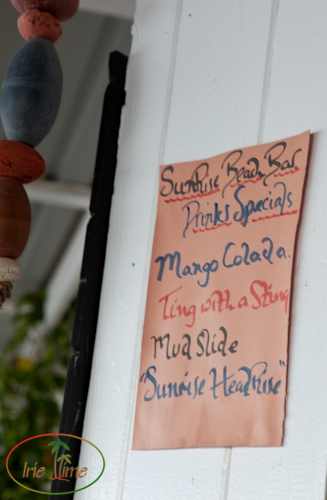 SunRise Beach Bar
Drinks Specials
Mango Colada.
Ting with a Sting
Mud Slide
"Sunrise HeadRise"
Irie Time